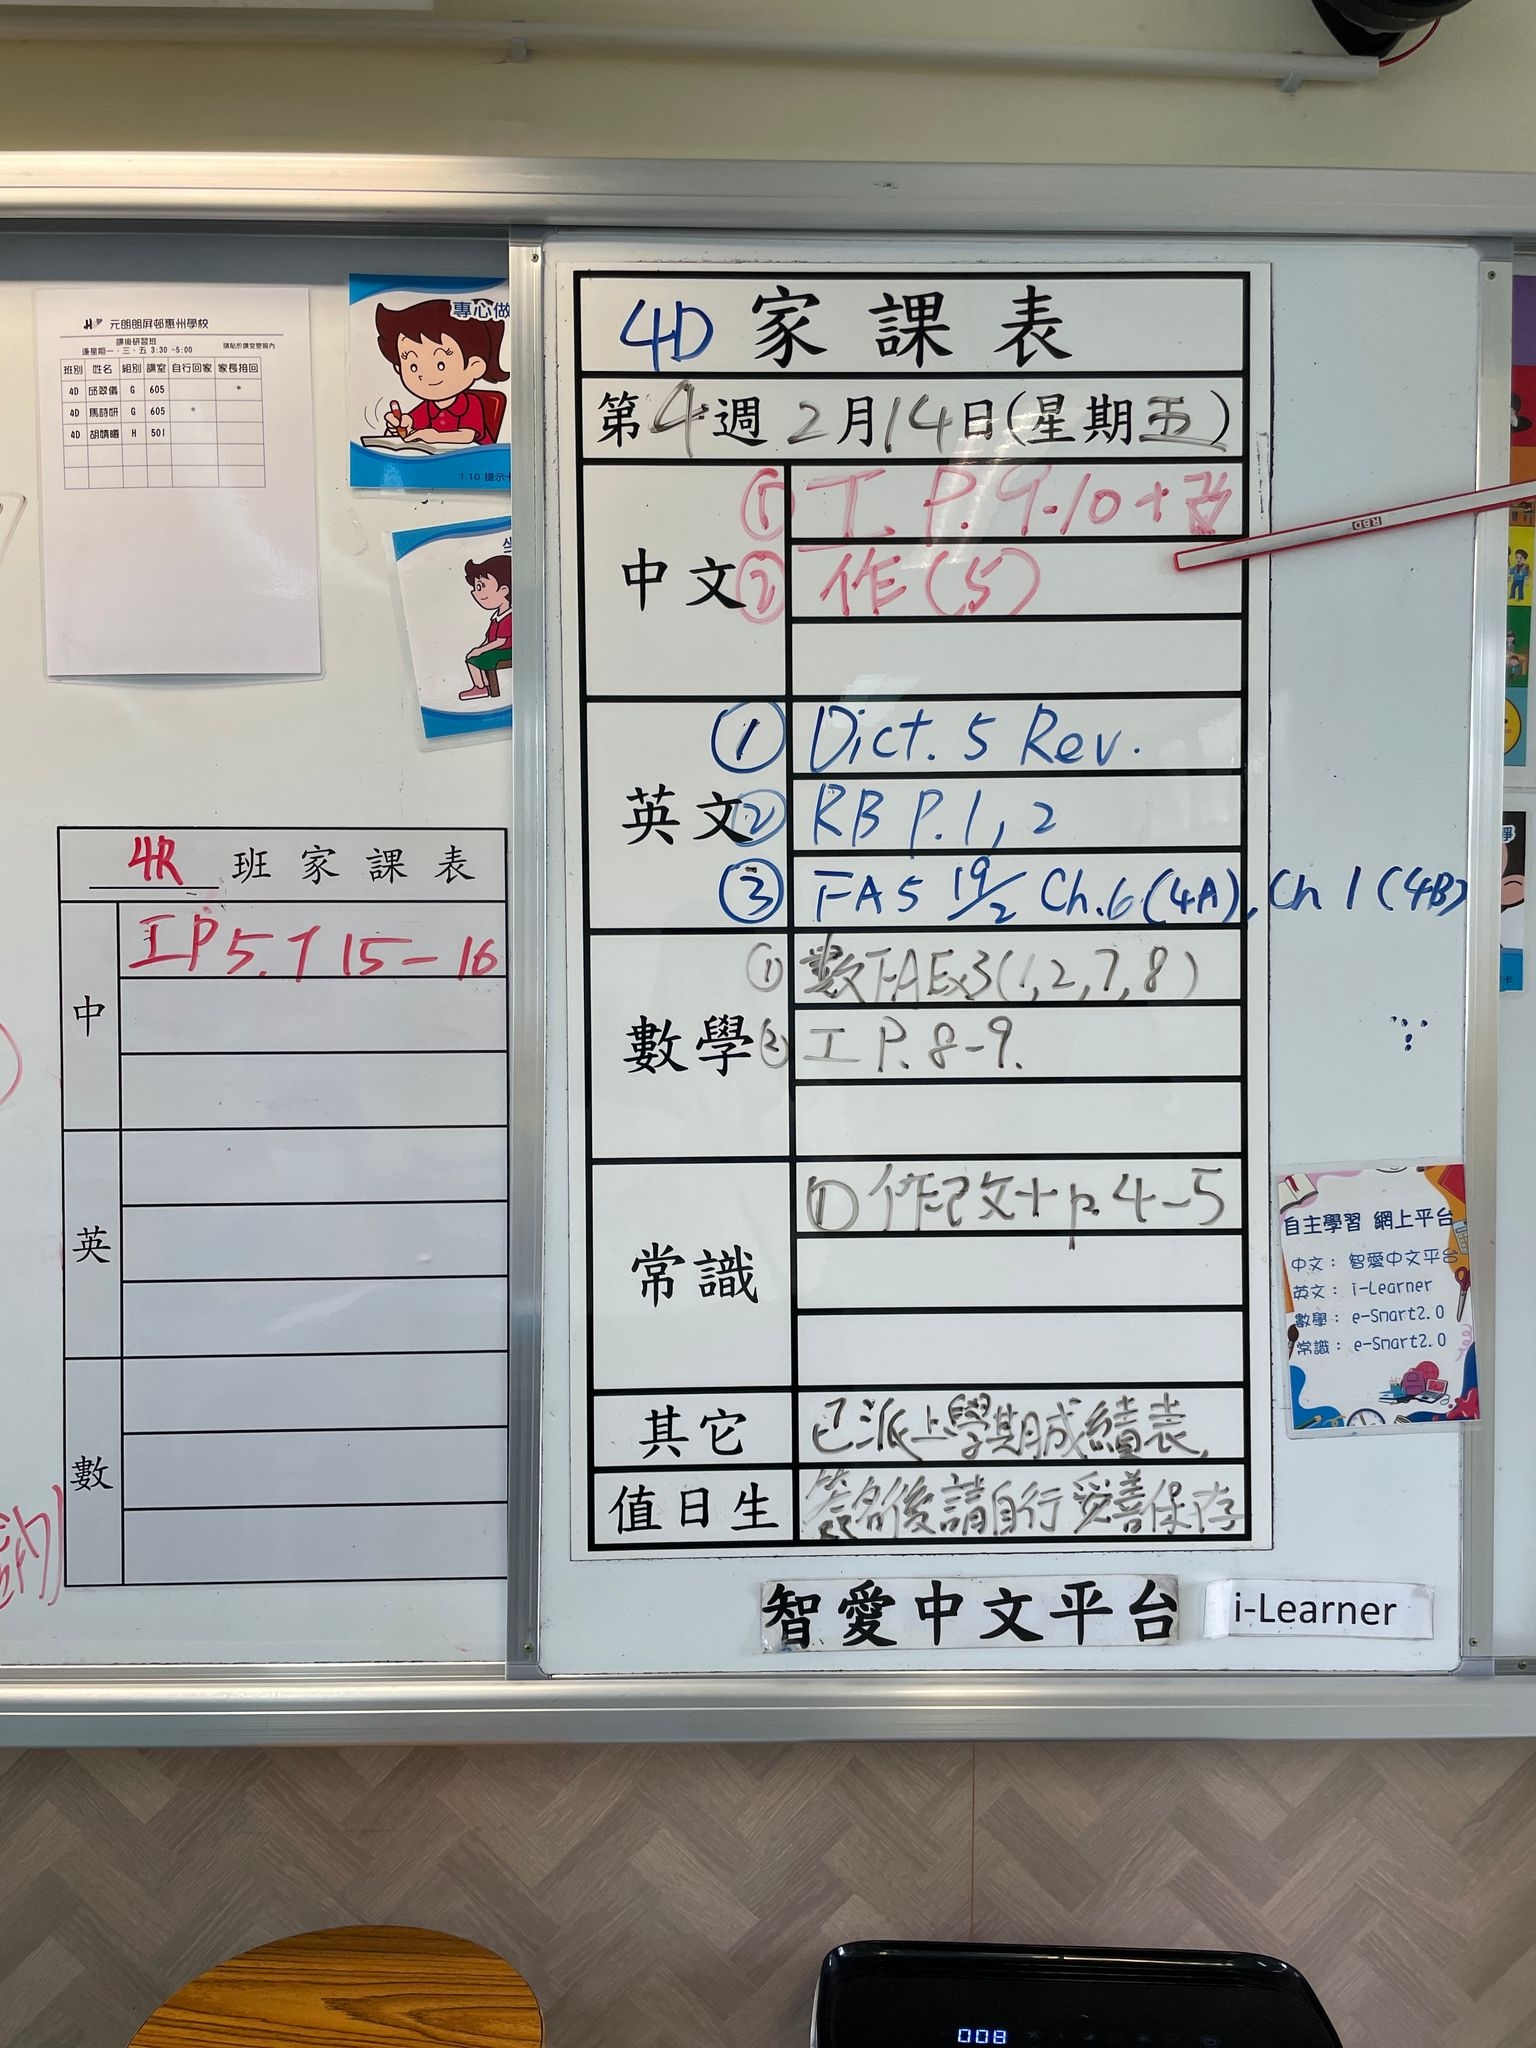 元朗朗屏邨惠州學校
課後研習班
逢星期一、三、五 3:30 ~5:00
請貼於課室壁報內
班別 姓名 組別 課室 自行回家 家長接回
4D 邱翠儀 G 605 *
4D 馬詩妍 G 605 *
4D 胡晴曦 H 501
專心做
1.10 提示卡
4R 班家課表
中
工P 5.7 15-16
英
數
4D 家課表
第4週 2月14日(星期五)
中文
① 工 P. 9-10+改
② 作(5)
英文
① Dict. 5 Rev.
② RB P.1, 2
③ FA5 19/2 Ch.6 (4A), Ch 1 (4B)
數學
① 數FAEx3(1,2,7,8)
② 工 P. 8-9.
常識
① 作改+p.4-5
其它
已派上學期成績表,
值日生
簽名後請自行妥善保存
自主學習 網上平台
中文：智愛中文平台
英文：i-Learner
數學：e-Smart2.0
常識：e-Smart2.0
智愛中文平台
i-Learner
RBD
008